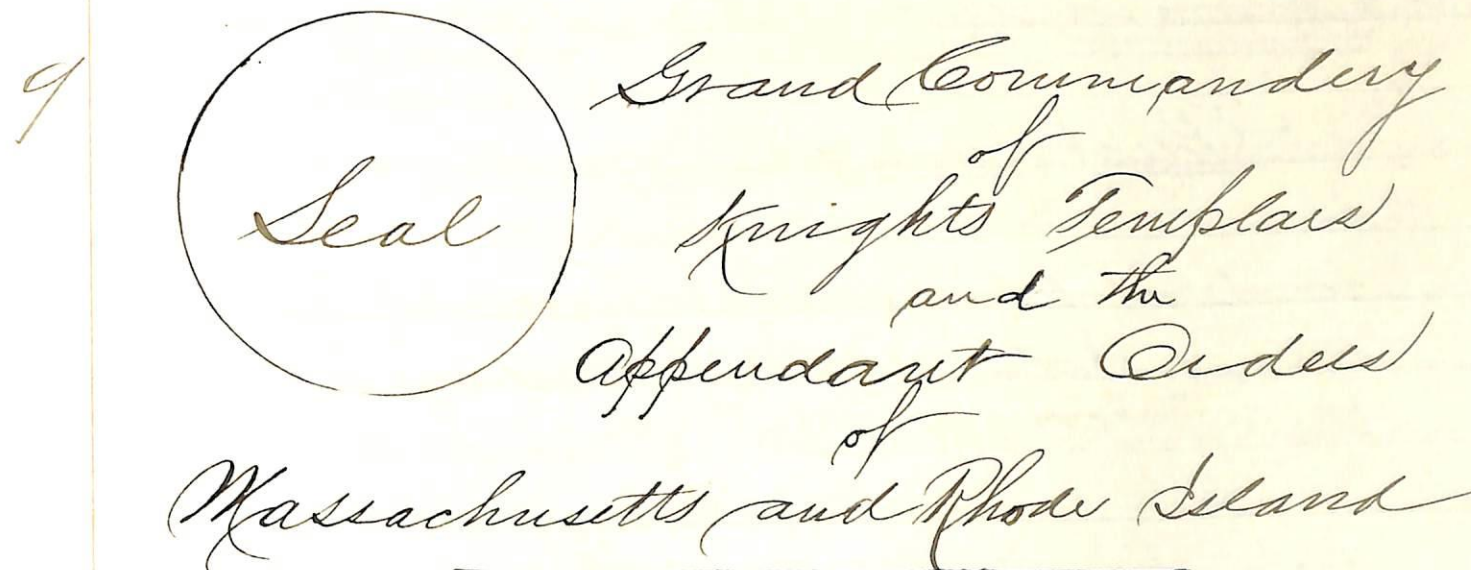 9
Grand Commandery
of
Seal
Knights Templars
and the
Appendant Orders
of
Massachusetts and Rhode Island